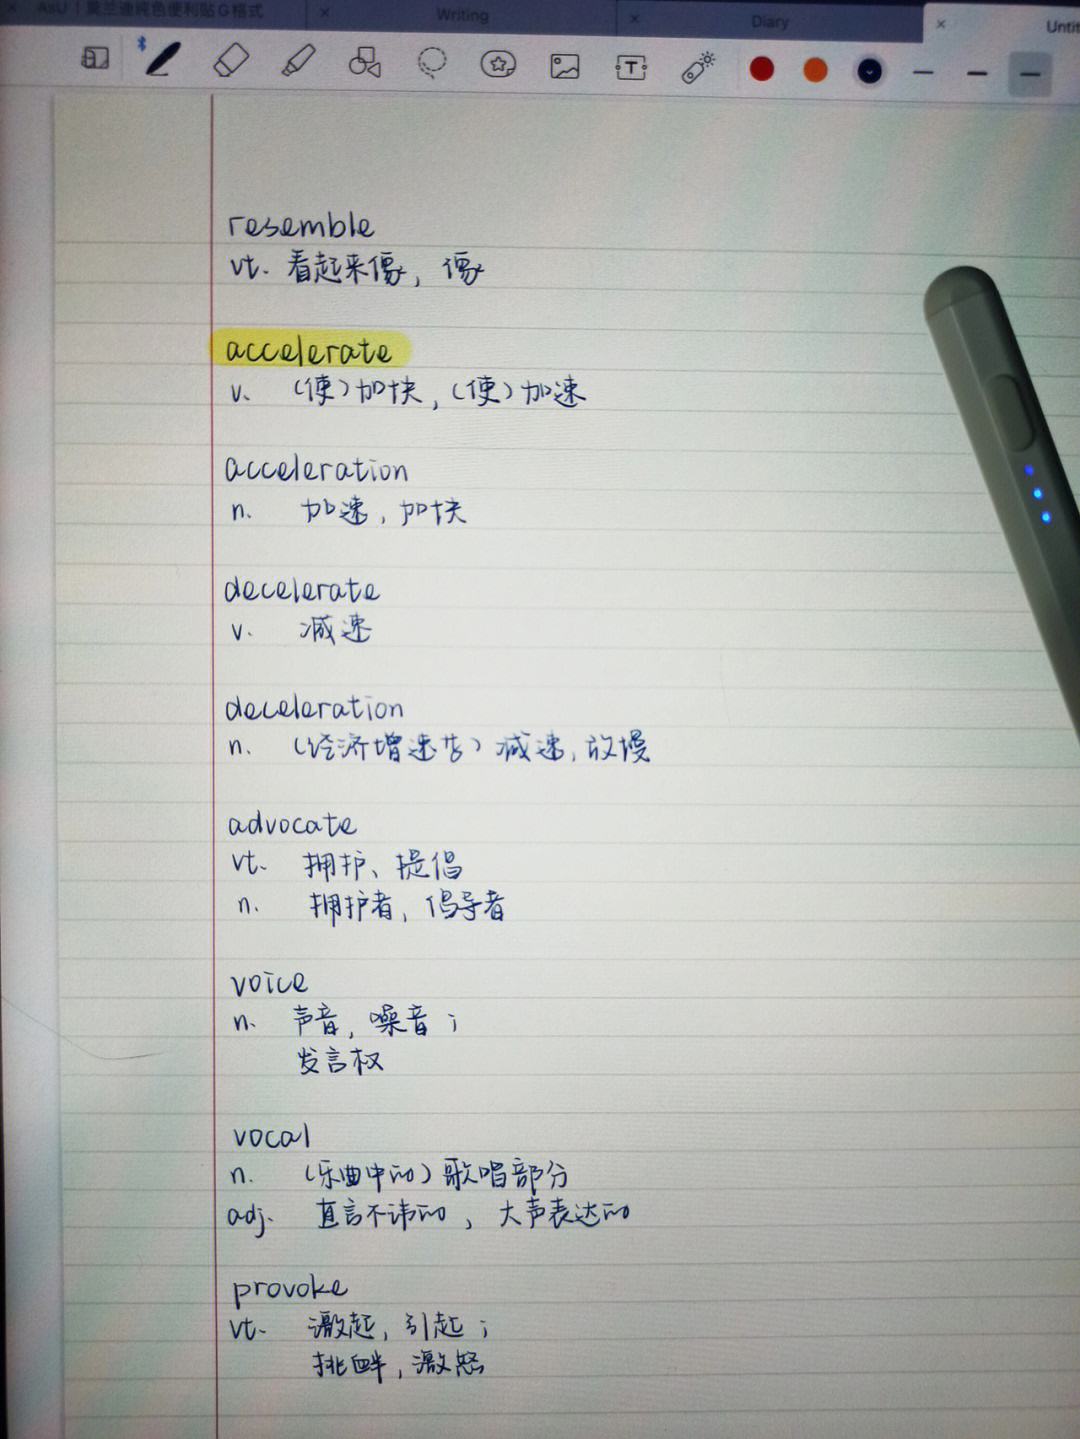 AsU | 莫兰迪纯色便利贴G格式
Writing
Diary
Untit
T
resemble
vt. 看起来像, 像
accelerate
v. (使)加快, (使)加速
acceleration
n. 加速, 加快
decelerate
v. 减速
deceleration
n. (经济增速等) 减速, 放慢
advocate
vt. 拥护、提倡
n. 拥护者, 倡导者
voice
n. 声音, 噪音;
发言权
vocal
n. (乐曲中的)歌唱部分
adj. 直言不讳的, 大声表达的
provoke
vt. 激起, 引起;
挑衅, 激怒